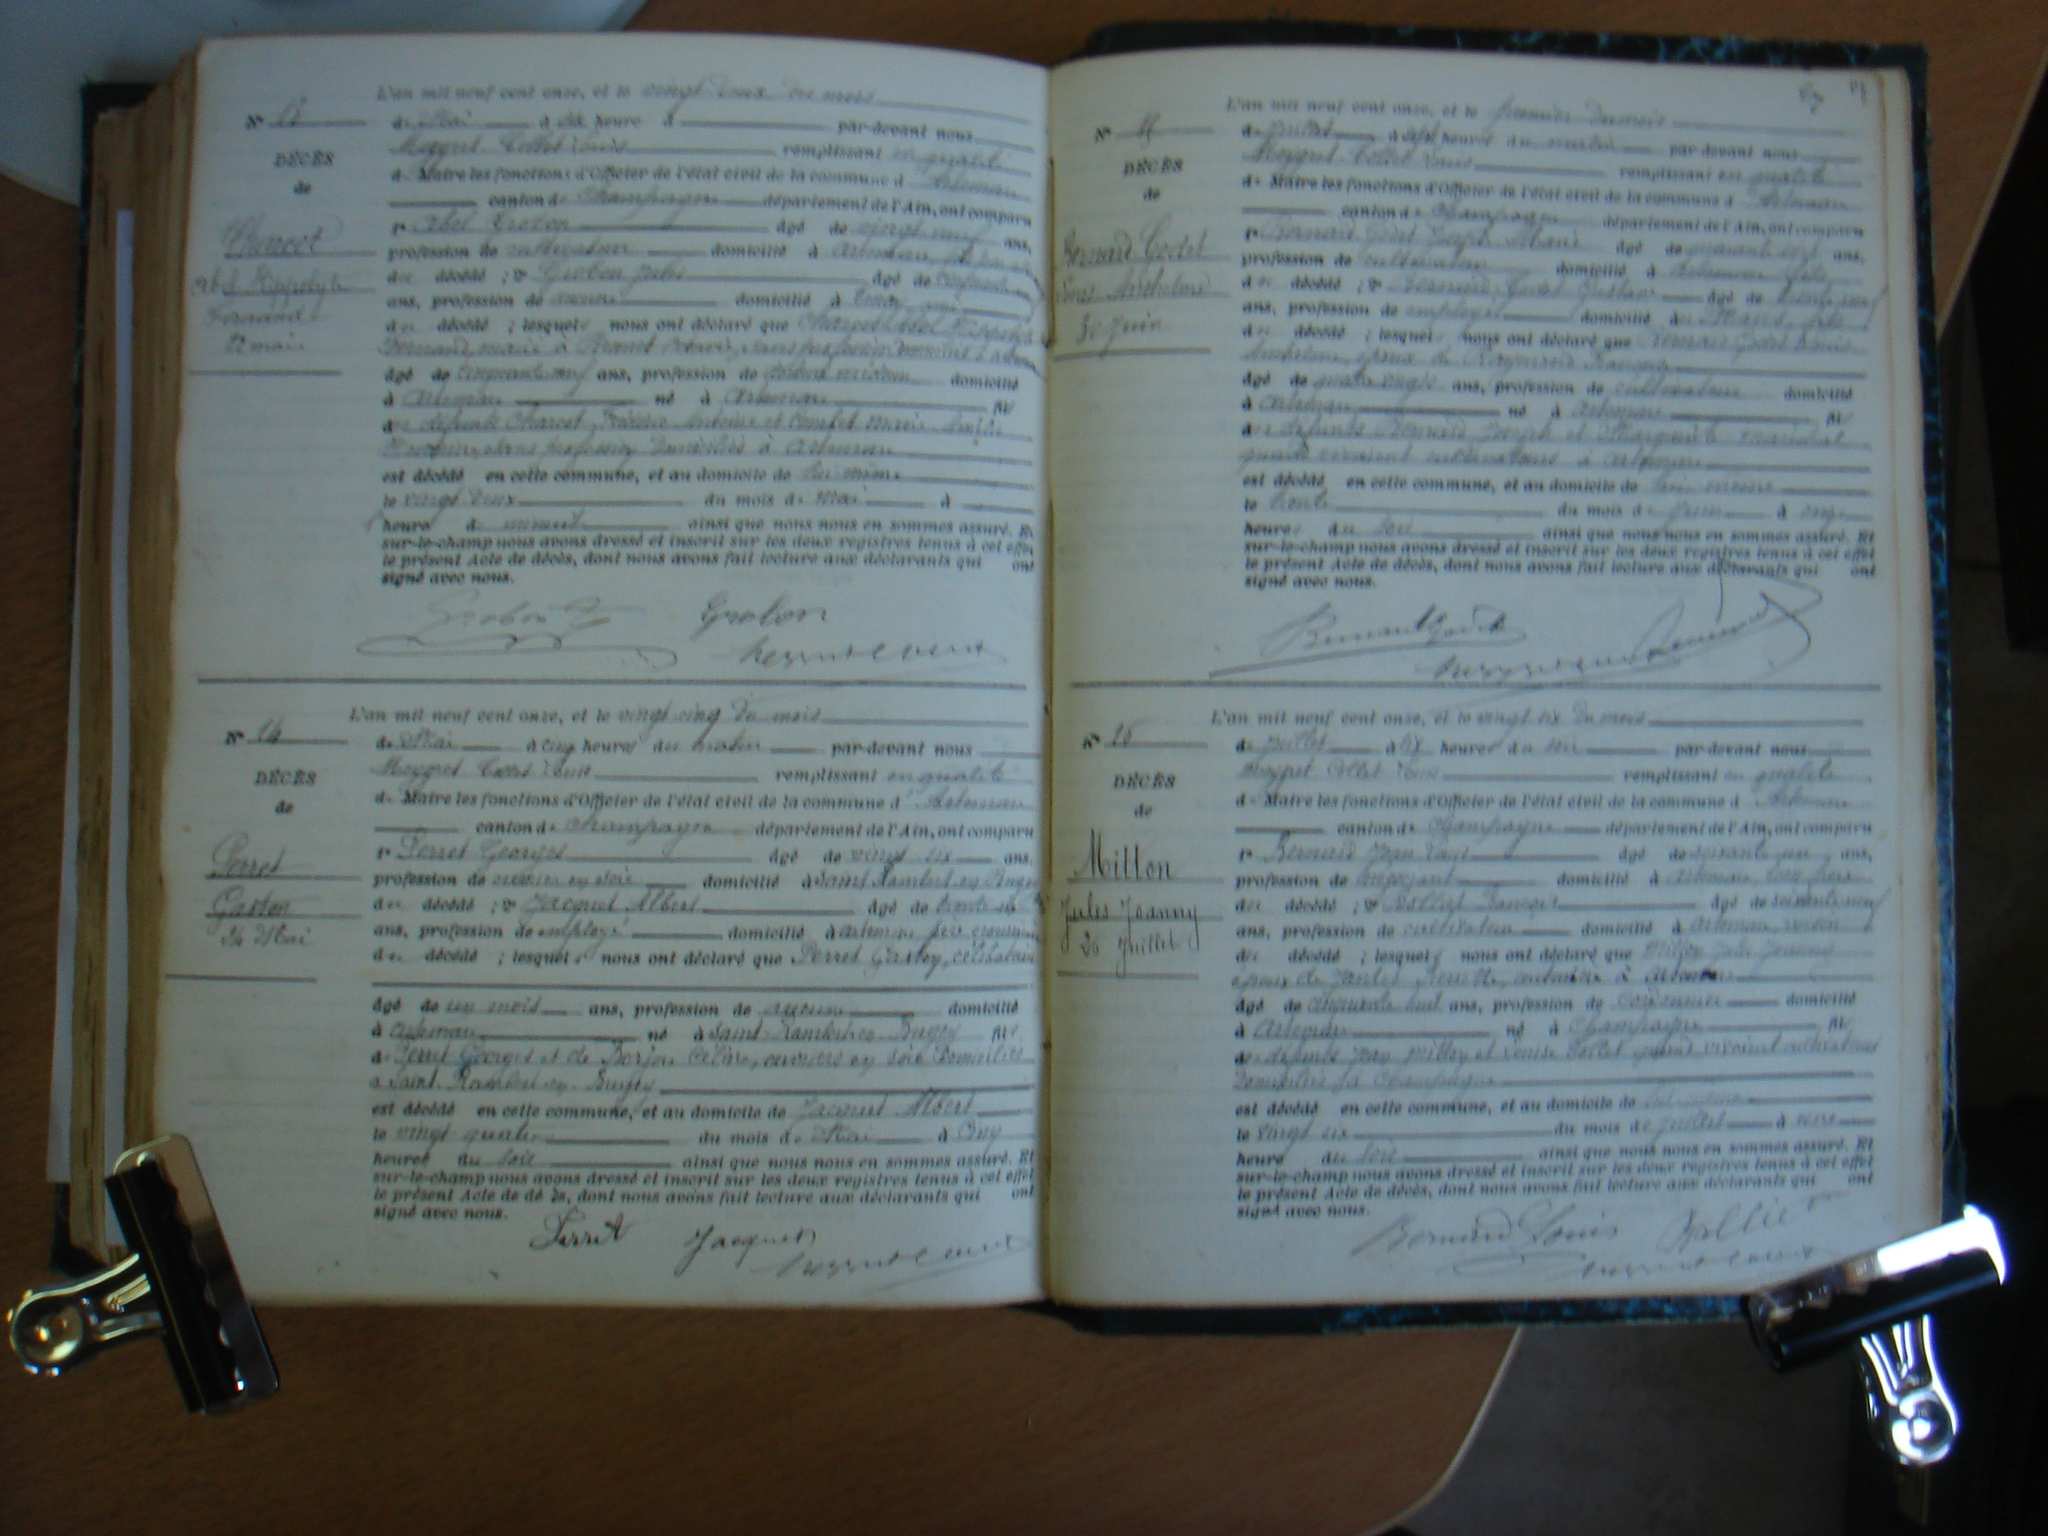 L'an mil neuf cent onze, et le vingt deux du mois
N°
de Mai à six heure d par-devant nous
DÉCÈS
Meygret Collet Louis remplissant en qualité
de
de Maire les fonctions d'Officier de l'état civil de la commune d' Artemare
canton de Champagne département de l'Ain, ont comparu
Charcot
1° Abel âgé de vingt neuf ans,
profession de cultivateur domicilié à Artemare
Abel Hippolyte
du décédé ; 2° Grobon Jules âgé de
Fernand
ans, profession de domicilié à
22 mai
du décédé ; lesquels nous ont déclaré que Charcot Abel Hippolyte
Fernand, marié à sans profession domicilié à
âgé de cinquante neuf ans, profession de domicilié
à Artemare né à Artemare fils
de défunts Charcot Antoine et Marie
sans profession domiciliés à Artemare
est décédé en cette commune, et au domicile de lui même
le vingt deux du mois de Mai à
heure de minuit ainsi que nous nous en sommes assuré. Et
sur-le-champ nous avons dressé et inscrit sur les deux registres tenus à cet effet
le présent Acte de décès, dont nous avons fait lecture aux déclarants qui ont
signé avec nous.
Grobon Grobon
L'an mil neuf cent onze, et le vingt cinq du mois
N° 14
de Mai à cinq heures du matin par-devant nous
DÉCÈS
Meygret Collet Louis remplissant en qualité
de
de Maire les fonctions d'Officier de l'état civil de la commune d' Artemare
canton de Champagne département de l'Ain, ont comparu
Perret
1° Perret Georges âgé de vingt six ans,
profession de ouvrier en soie domicilié à Saint Rambert en Bugey
Gaston
du décédé ; 2° Jacquet Albert âgé de trente
24 Mai
ans, profession de employé domicilié à Artemare père nourricier
du décédé ; lesquels nous ont déclaré que Perret Gaston, célibataire
âgé de un mois ans, profession de aucune domicilié
à Artemare né à Saint-Rambert-en-Bugey fils
de Perret Georges et de Borjon ouvriers en soie domiciliés
à Saint-Rambert-en-Bugey
est décédé en cette commune, et au domicile de Jacquet Albert
le vingt quatre du mois de Mai à onze
heures du soir ainsi que nous nous en sommes assuré. Et
sur-le-champ nous avons dressé et inscrit sur les deux registres tenus à cet effet
le présent Acte de décès, dont nous avons fait lecture aux déclarants qui ont
signé avec nous.
Perret Jacquet
L'an mil neuf cent onze, et le premier du mois
N°
de Juillet à sept heures du matin par-devant nous
DÉCÈS
Meygret Collet Louis remplissant en qualité
de
de Maire les fonctions d'Officier de l'état civil de la commune d' Artemare
canton de Champagne département de l'Ain, ont comparu
Bernard Godet
1° Bernard Godet Joseph Marie âgé de quarante ans,
profession de cultivateur domicilié à Artemare fils
Louis Anthelme
du décédé ; 2° Bernard Godet Gustave âgé de trente
30 Juin
ans, profession de employé domicilié à fils
du décédé ; lesquels nous ont déclaré que Bernard Godet Louis
Anthelme, époux de Raymond Françoise
âgé de quatre vingts ans, profession de cultivateur domicilié
à Artemare né à Artemare fils
de défunts Bernard Joseph et Marguerite
quand vivaient cultivateurs à Artemare
est décédé en cette commune, et au domicile de lui même
le trente du mois de Juin à onze
heures du soir ainsi que nous nous en sommes assuré. Et
sur-le-champ nous avons dressé et inscrit sur les deux registres tenus à cet effet
le présent Acte de décès, dont nous avons fait lecture aux déclarants qui ont
signé avec nous.
Bernard Godet
L'an mil neuf cent onze, et le vingt six du mois
N°
de Juillet à six heures du soir par-devant nous
DÉCÈS
Meygret Collet Louis remplissant en qualité
de
de Maire les fonctions d'Officier de l'état civil de la commune d' Artemare
canton de Champagne département de l'Ain, ont comparu
Millon
1° Bernard Jean Louis âgé de soixante un ans,
profession de domicilié à Artemare,
Jules Joanny
du décédé ; 2° François âgé de soixante neuf
26 Juillet
ans, profession de cultivateur domicilié à Artemare voisin
du décédé ; lesquels nous ont déclaré que Millon Jules Joanny
époux de domicilié à Artemare
âgé de cinquante huit ans, profession de cordonnier domicilié
à Artemare né à Champagne fils
de défunts Jean Millon et Louise quand vivaient cultivateurs
domiciliés à Champagne
est décédé en cette commune, et au domicile de lui même
le vingt six du mois de Juillet à une
heure du soir ainsi que nous nous en sommes assuré. Et
sur-le-champ nous avons dressé et inscrit sur les deux registres tenus à cet effet
le présent Acte de décès, dont nous avons fait lecture aux déclarants qui ont
signé avec nous.
Bernard Louis